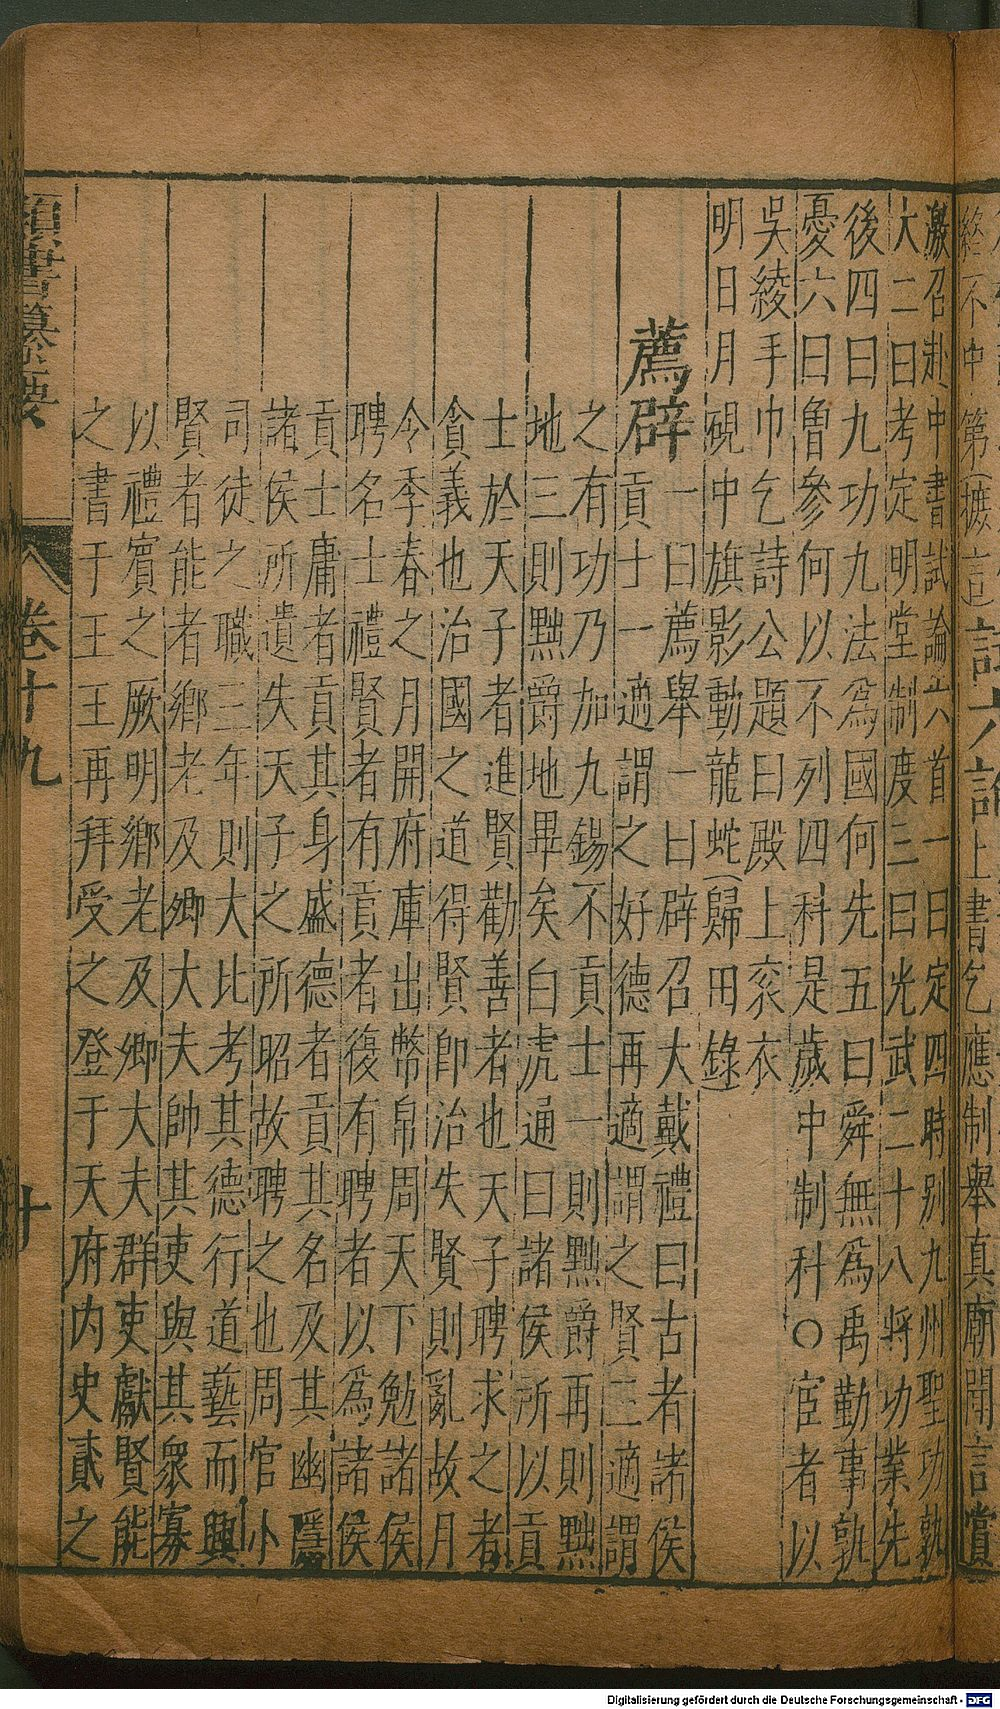 終不中第(摭言)試六論上書乞應制舉真廟聞言賞
激召赴中書試論六首一曰定四時別九州聖功孰
大二曰考定明堂制度三曰光武二十八將功業先
後四曰九功九法爲國何先五曰舜無爲禹勤事孰
憂六曰魯參何以不列四科是歲中制科○宦者以
吳綾手巾乞詩公題曰殿上衮衣
明日月硯中旗影動龍蛇(歸田錄)
薦辟
一曰薦舉一曰辟召大戴禮曰古者諸侯
貢士一適謂之好德再適謂之賢三適謂
之有功乃加九錫不貢士一則黜爵再則黜
地三則黜爵地畢矣白虎通曰諸侯所以貢
士於天子者進賢勸善者也天子聘求之者
貪義也治國之道得賢即治失賢則亂故月
令季春之月開府庫出幣帛周天下勉諸侯
聘名士禮賢者有貢者復有聘者以爲諸侯
貢士庸者貢其身盛德者貢其名及其幽隱
諸侯所遺失天子之所昭故聘之也周官小
司徒之職三年則大比考其德行道藝而興
賢者能者鄉老及鄉大夫帥其吏與其衆寡
以禮賓之厥明鄉老及鄉大夫群吏獻賢能
之書于王王再拜受之登于天府内史貳之
類書纂要 卷十九 十
Digitalisierung gefördert durch die Deutsche Forschungsgemeinschaft - DFG